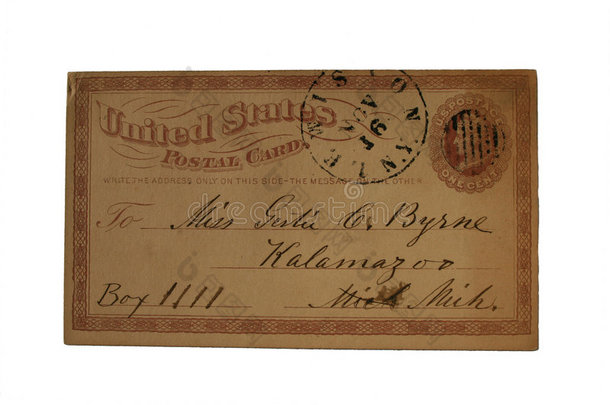 United States
POSTAL CARD.
WRITE THE ADDRESS ONLY ON THIS SIDE-THE MESSAGE ON THE OTHER
LEWISTON
NOV
16
U.S. POSTAGE
ONE CENT
To Miss Gertie C. Byrne
Kalamazoo
Box 1111 Mich Mich.
dreamstime